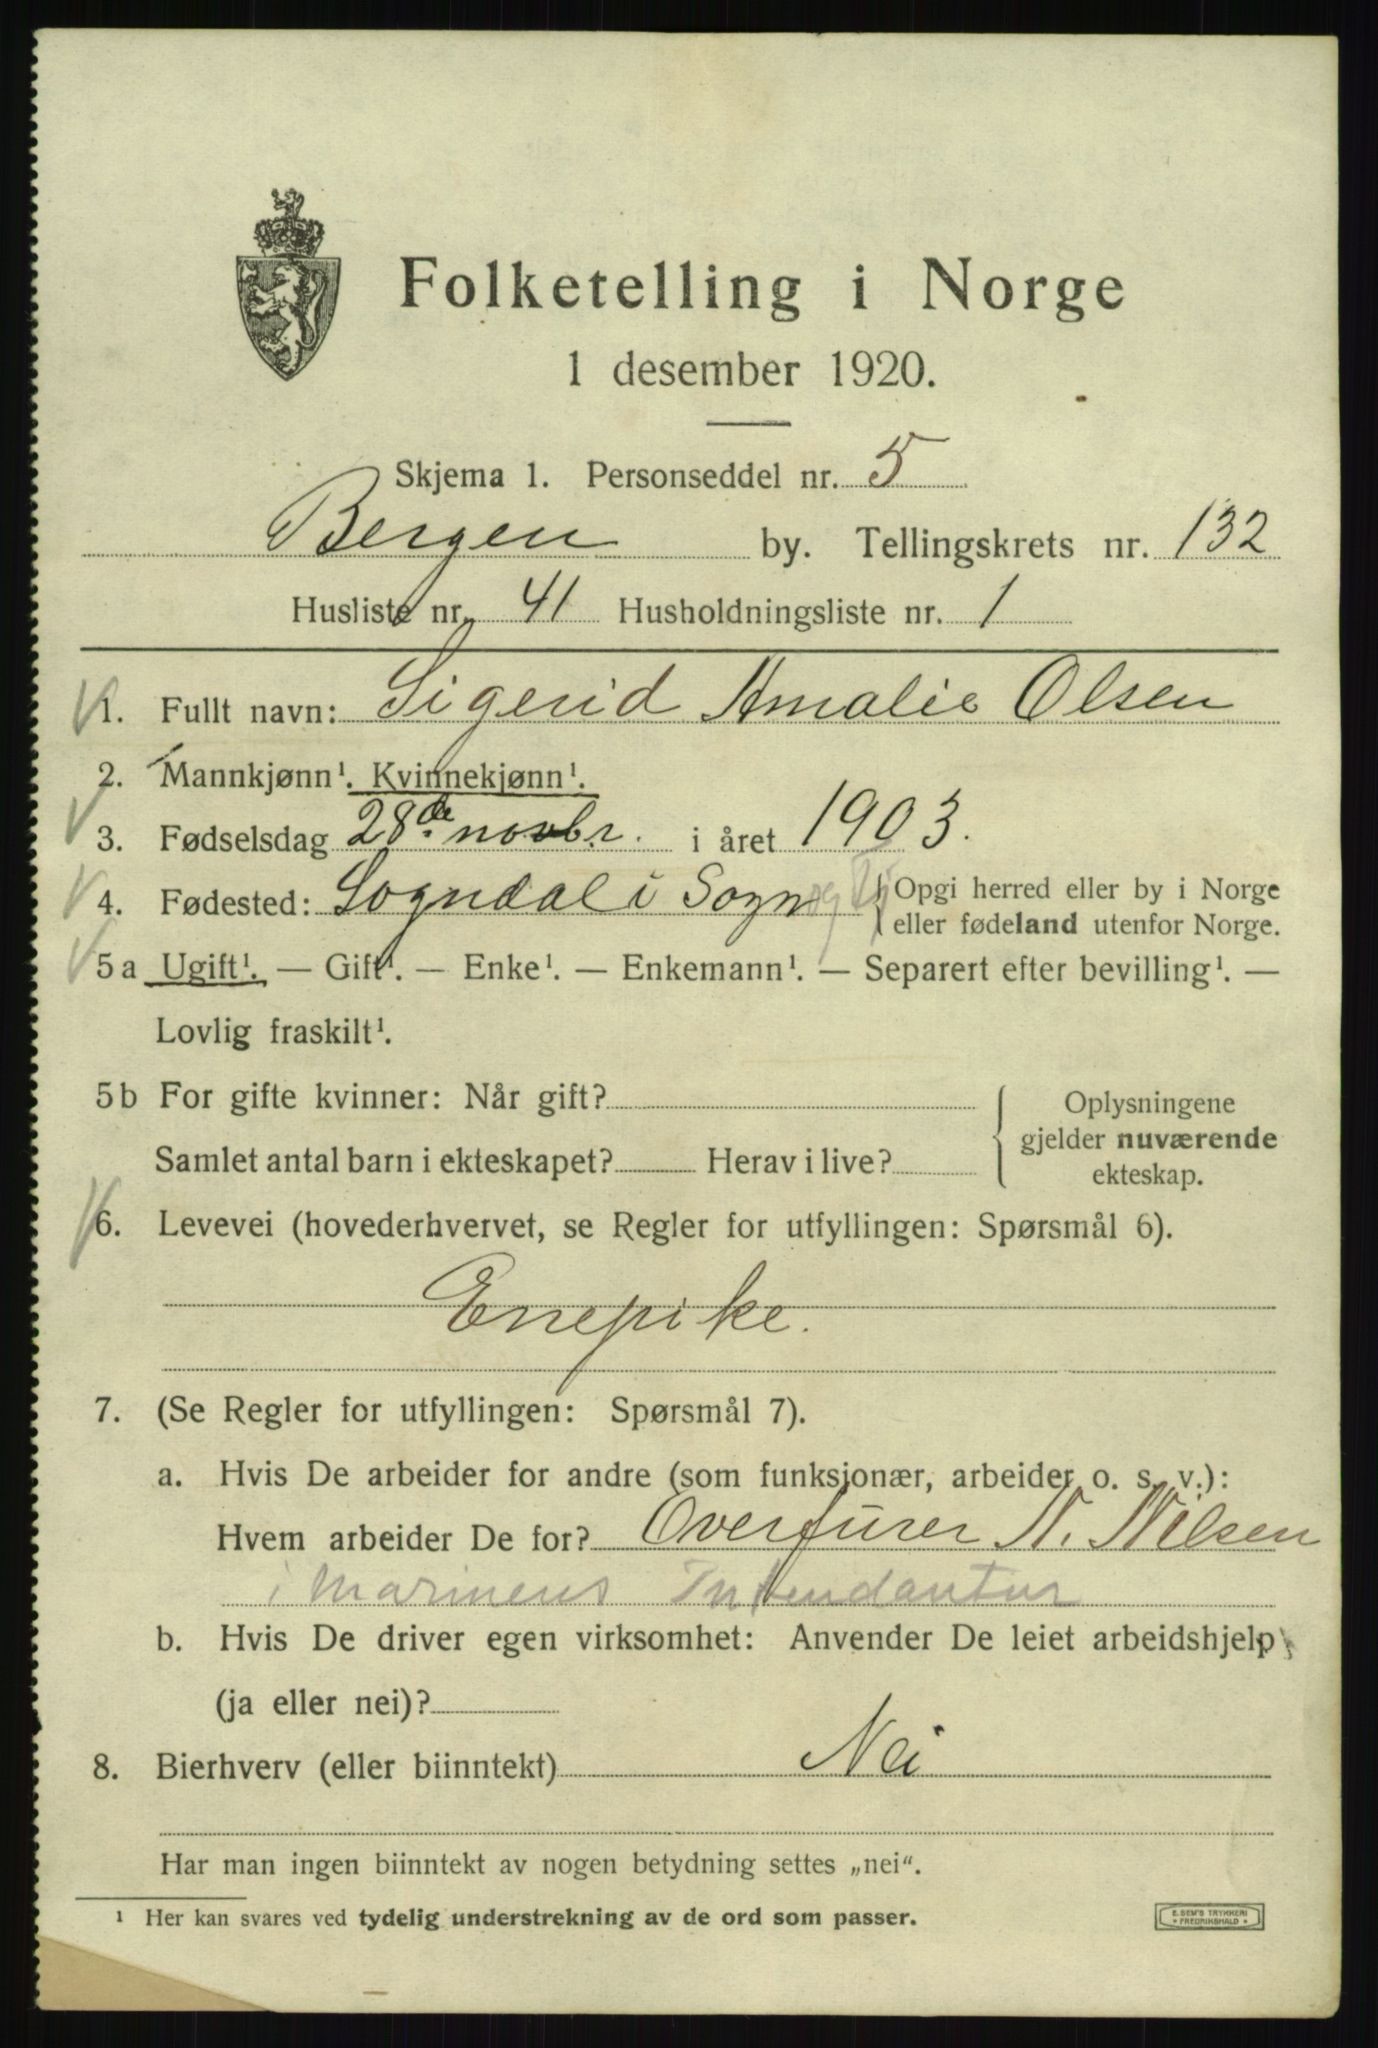 Folketelling i Norge
1 desember 1920.
Skjema 1. Personseddel nr. 5
Bergen by. Tellingskrets nr. 132
Husliste nr. 41 Husholdningsliste nr. 1
1. Fullt navn: Sigerid Amalie Olsen
2. Mannkjønn¹. Kvinnekjønn¹.
3. Fødselsdag 28de novbr. i året 1903.
4. Fødested: Sogndal i Sogn og Fj { Opgi herred eller by i Norge
eller fødeland utenfor Norge.
5a Ugift¹. — Gift¹. — Enke¹. — Enkemann¹. — Separert efter bevilling¹. —
Lovlig fraskilt¹.
5b For gifte kvinner: Når gift? { Oplysningene
gjelder nuværende
Samlet antal barn i ekteskapet? Herav i live?
ekteskap.
6. Levevei (hovederhvervet, se Regler for utfyllingen: Spørsmål 6).
Enepike.
7. (Se Regler for utfyllingen: Spørsmål 7).
a. Hvis De arbeider for andre (som funksjonær, arbeider o. s. v.):
Hvem arbeider De for? Overfurer N. Nilsen
i Marinens Intendantur
b. Hvis De driver egen virksomhet: Anvender De leiet arbeidshjelp
(ja eller nei)?
8. Bierhverv (eller biinntekt) Nei
Har man ingen biinntekt av nogen betydning settes „nei“.
¹ Her kan svares ved tydelig understrekning av de ord som passer.
E. SEM'S TRYKKERI
FREDRIKSHALD